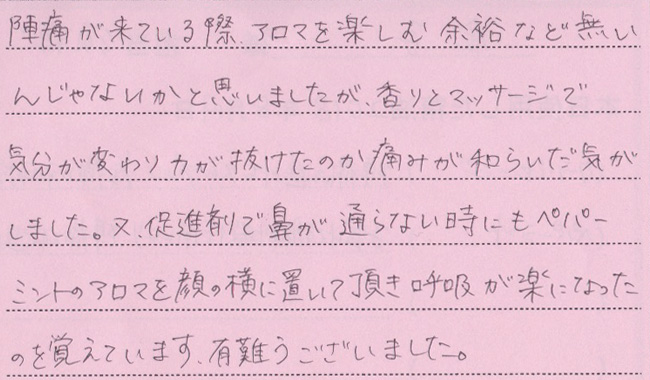 陣痛が来ている際、アロマを楽しむ余裕など無い
んじゃないかと思いましたが、香りとマッサージで
気分が変わり力が抜けたのか痛みが和らいだ気が
しました。又、促進剤で鼻が通らない時にもペパー
ミントのアロマを顔の横に置いて頂き呼吸が楽になった
のを覚えています、有難うございました。